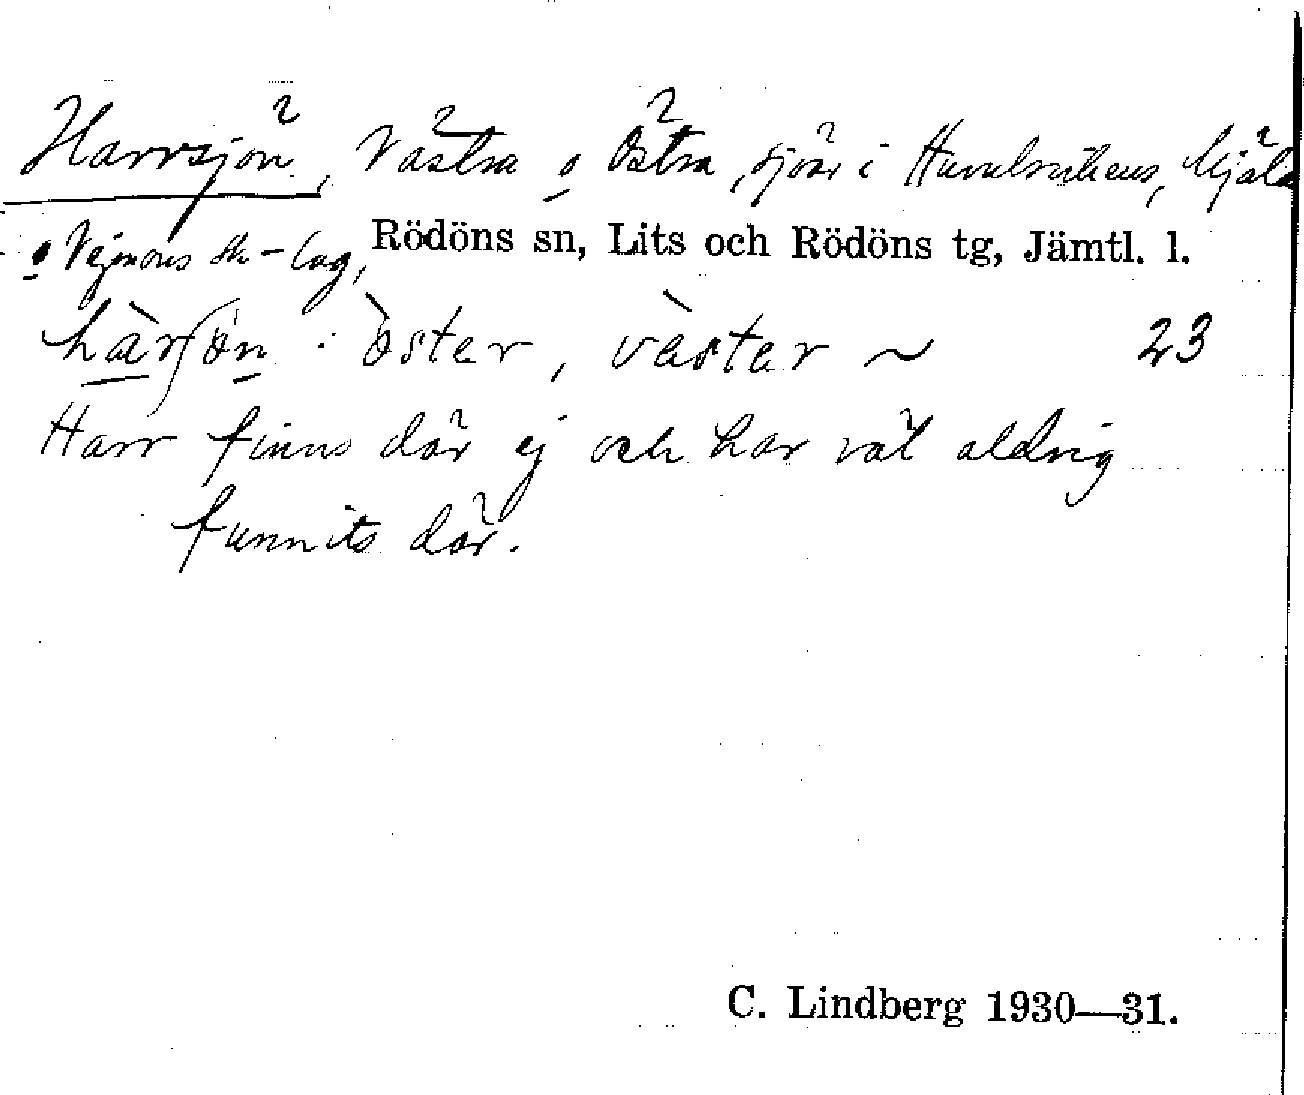 Harrsjön, Västra o Östra, sjöar i Huvulsvikens, Kjäls
o Vejmons sk-lag, Rödöns sn, Lits och Rödöns tg, Jämtl. l.
hàrʃön · òster, vàster ~ 23
Harr finns där ej och har väl aldrig
funnits där.
C. Lindberg 1930—31.